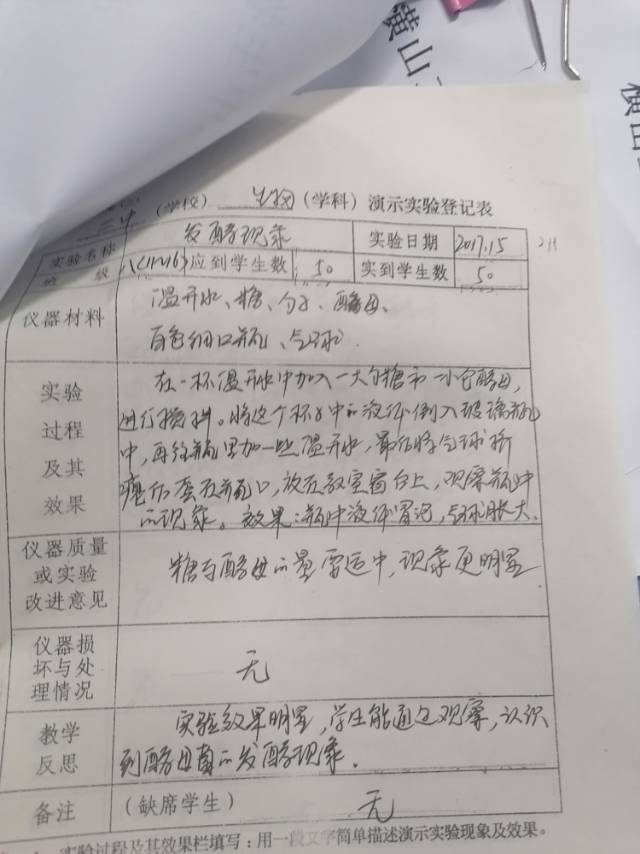 横山
横山
中 (学校) 生物 (学科) 演示实验登记表
实验名称 发酵现象 实验日期 2017.15
级 应到学生数 50 实到学生数 50
仪器材料
温开水、糖、勺子、酵母、
细口瓶、气球.
实验
过程
及其
效果
在一杯温开水中加入一大勺糖和一小包酵母,
进行搅拌。将这个杯子中的液体倒入玻璃瓶
中,再往瓶里加一些温开水,最后将气球挤
瘪后套在瓶口,放在教室窗台上,观察瓶中
的现象。效果:瓶中液体冒泡,气球胀大.
仪器质量
或实验
改进意见
糖与酵母的量要适中,现象更明显
仪器损
坏与处
理情况
无
教学
反思
实验效果明显,学生能通过观察,认识
到酵母菌的发酵现象.
备注 (缺席学生) 无
实验过程及其效果栏填写:用一段文字简单描述演示实验现象及效果。